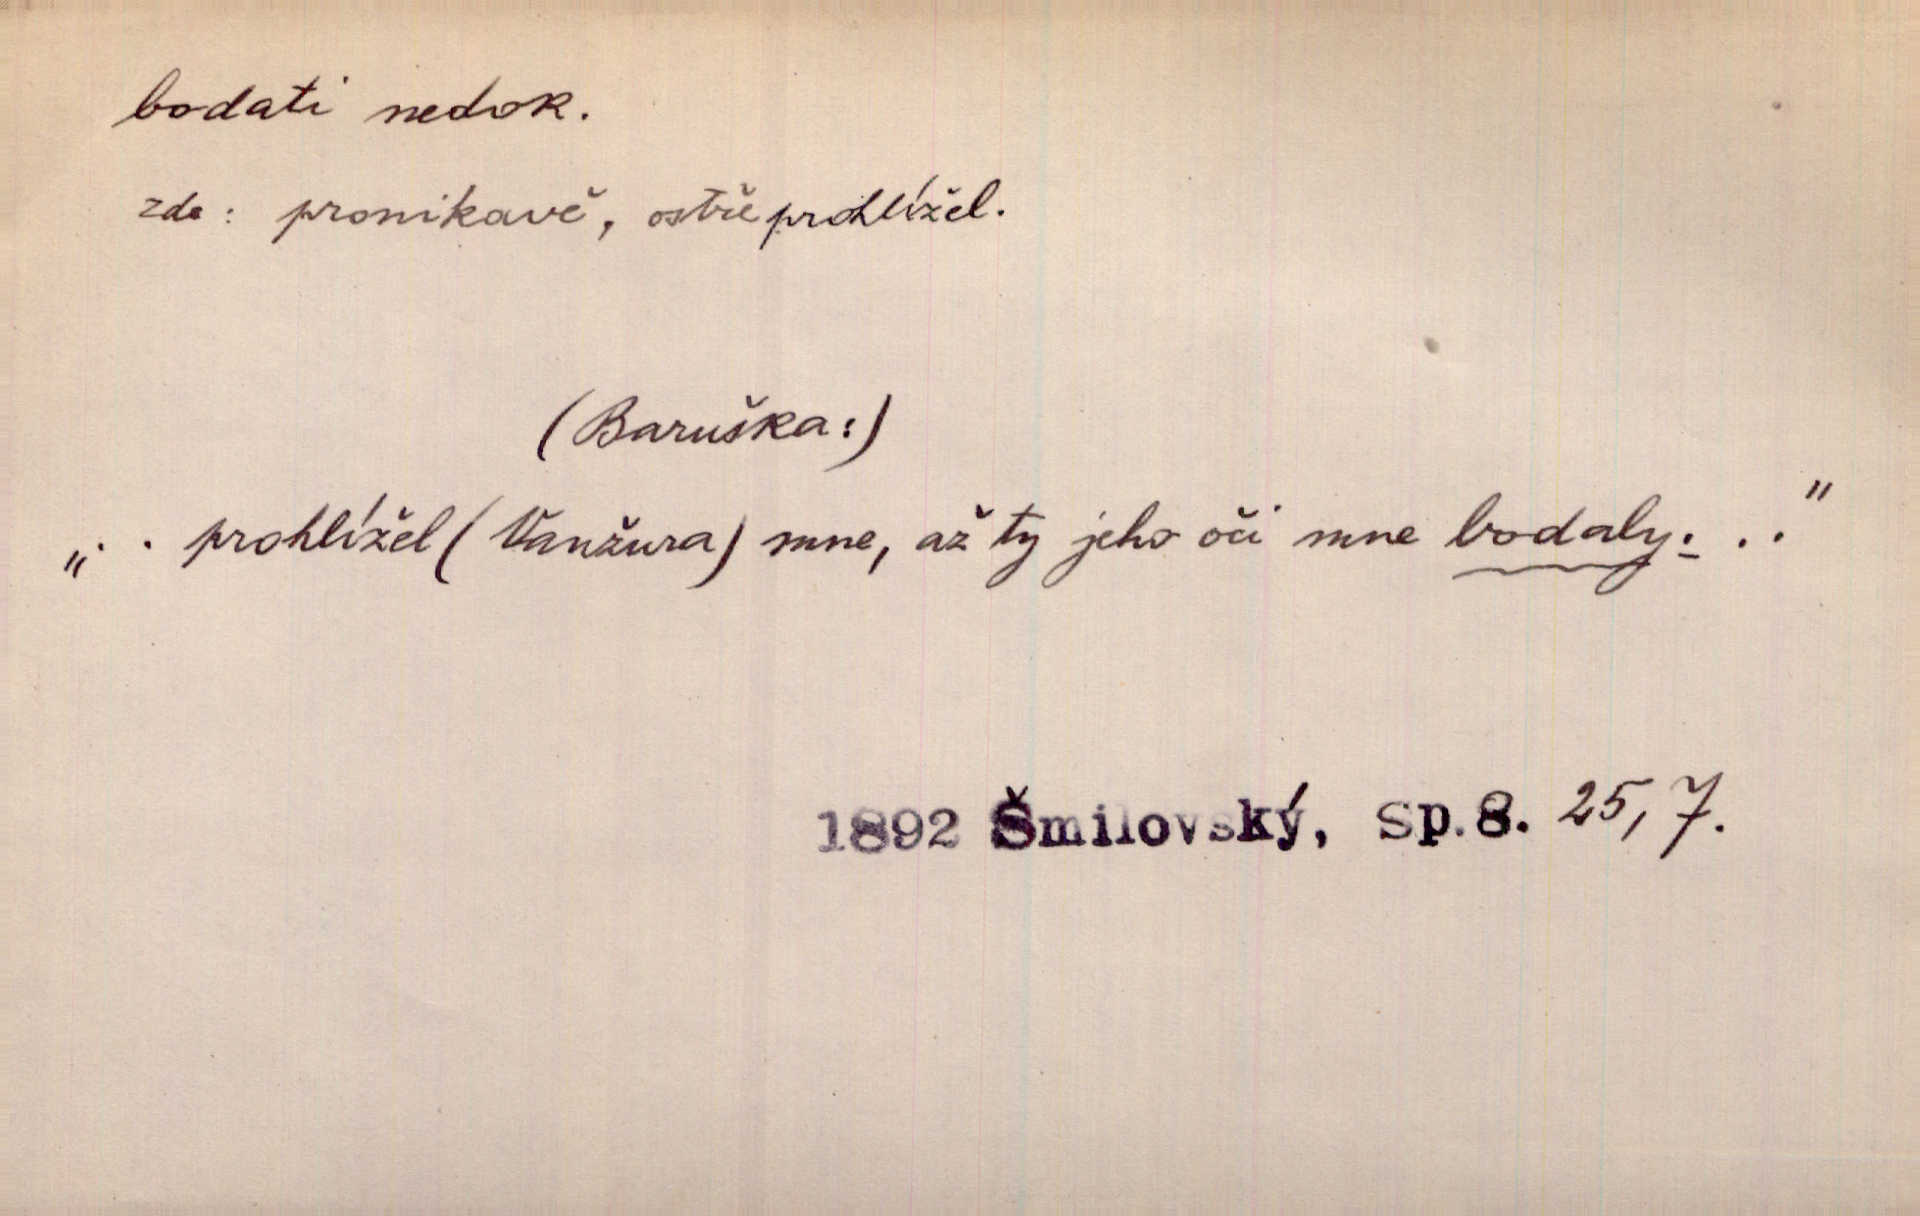 bodati nedok.
zde: pronikavě, ostře prohlížel.
(Baruška:)
„. . prohlížel (Vanžura) mne, až ty jeho oči mne bodaly. . ."
1892 Šmilovský, Sp.8. 25, 7.